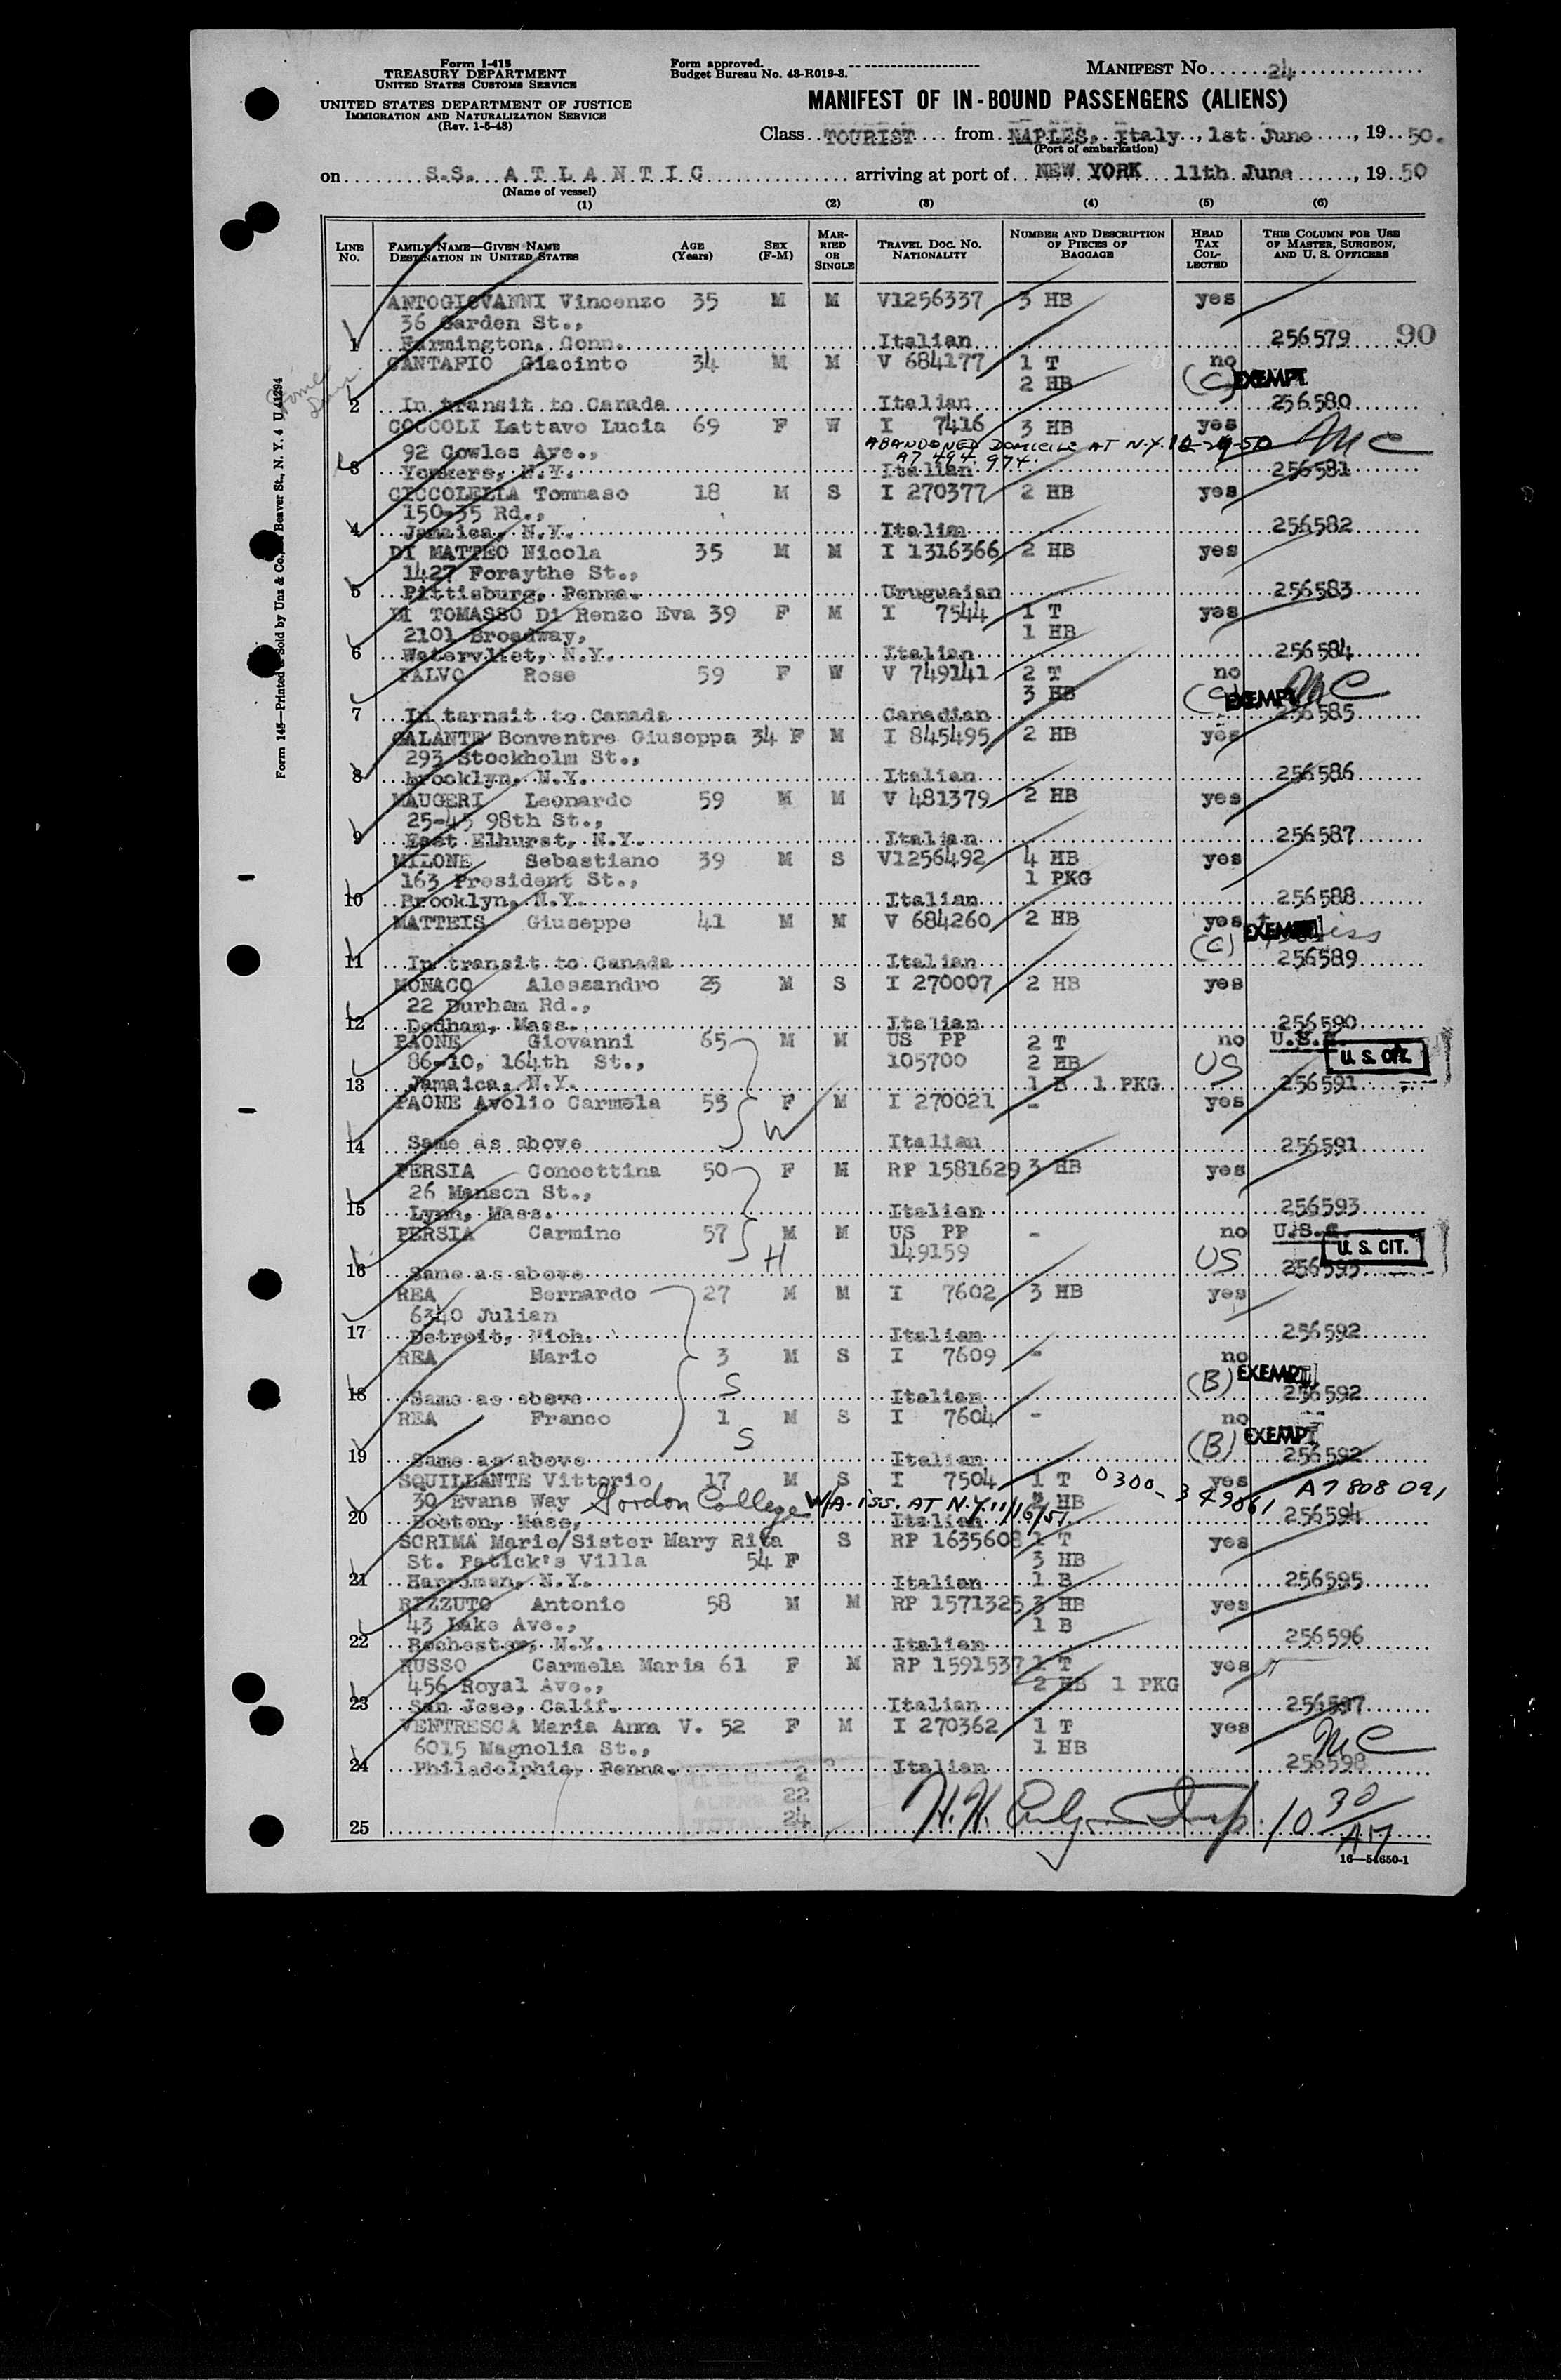 Form I-415
TREASURY DEPARTMENT
UNITED STATES CUSTOMS SERVICE
UNITED STATES DEPARTMENT OF JUSTICE
IMMIGRATION AND NATURALIZATION SERVICE
(Rev. 1-5-48)
Form approved.
Budget Bureau No. 43-R019-3.
MANIFEST No. 24
MANIFEST OF IN-BOUND PASSENGERS (ALIENS)
Class TOURIST from NAPLES, Italy, 1st June, 19 50.
(Port of embarkation)
on S.S. ATLANTIC arriving at port of NEW YORK 11th June, 19 50
(Name of vessel)
(1) (2) (3) (4) (5) (6)
LINE No. FAMILY NAME—GIVEN NAME DESTINATION IN UNITED STATES AGE (Years) SEX (F-M) MARRIED OR SINGLE TRAVEL DOC. NO. NATIONALITY NUMBER AND DESCRIPTION OF PIECES OF BAGGAGE HEAD TAX COLLECTED THIS COLUMN FOR USE OF MASTER, SURGEON, AND U. S. OFFICERS
ANTOGIOVANNI Vincenzo 35 M M V1256337 3 HB yes
36 Garden St.,
1 Farmington, Conn. Italian 256579 90
CANTAFIO Giacinto 34 M M V 684177 1 T no
2 HB (C) EXEMPT
2 In transit to Canada Italian 256580
COCCOLI Lattavo Lucia 69 F W I 7416 3 HB yes
ABANDONED DOMICILE AT N.Y. MC
92 Cowles Ave., A7 494 974.
3 Yonkers, N.Y. Italian 256581
CICCOLELLA Tommaso 18 M S I 270377 2 HB yes
150-35 Rd.,
4 Jamaica, N.Y. Italian 256582
DI MATTEO Nicola 35 M M I 1316366 2 HB yes
1427 Foraythe St.,
5 Pittisburg, Penna. Uruguaian 256583
DI TOMASSO Di Renzo Eva 39 F M I 7544 1 T yes
2101 Broadway, 1 HB
6 Watervliet, N.Y. Italian 256584
FALVO Rose 59 F W V 749141 2 T no
3 HB (C) EXEMPT MC
7 In tarnsit to Canada Canadian 256585
GALANTE Bonventre Giuseppa 34 F M I 845495 2 HB yes
293 Stockholm St.,
8 Brooklyn, N.Y. Italian 256586
MAUGERI Leonardo 59 M M V 481379 2 HB yes
25-45 98th St.,
9 East Elhurst, N.Y. Italian 256587
MILONE Sebastiano 39 M S V1256492 4 HB yes
163 President St., 1 PKG
10 Brooklyn, N.Y. Italian 256588
MATTEIS Giuseppe 41 M M V 684260 2 HB yes
(C) EXEMPT
11 In transit to Canada Italian 256589
MONACO Alessandro 25 M S I 270007 2 HB yes
22 Durham Rd.,
12 Dedham, Mass. Italian 256590
PAONE Giovanni 65 M M US PP 2 T no U.S.A.
86-10, 164th St., 105700 2 HB US U. S. CIT.
13 Jamaica, N.Y. 1 B 1 PKG 256591
PAONE Avolio Carmela 53 F M I 270021 - yes
W
14 Same as above Italian 256591
PERSIA Concettina 50 F M RP 1581629 3 HB yes
26 Manson St.,
15 Lynn, Mass. Italian 256593
PERSIA Carmine 57 M M US PP - no U.S.A.
H 149159 US U. S. CIT.
16 Same as above 256593
REA Bernardo 27 M M I 7602 3 HB yes
6340 Julian
17 Detroit, Mich. Italian 256592
REA Mario 3 M S I 7609 - no
S (B) EXEMPT
18 Same as above Italian 256592
REA Franco 1 M S I 7604 - no
S (B) EXEMPT
19 Same as above Italian 256592
SQUILLANTE Vittorio 17 M S I 7504 1 T 0300-349061 yes A7 808 091
30 Evans Way Gordon College W/A. iss. AT N.Y. 11/16/51 HB
20 Boston, Mass, Italian 256594
SCRIMA Marie/Sister Mary Rita S RP 1635608 1 T yes
St. Patick's Villa 54 F 3 HB
21 Harriman, N.Y. Italian 1 B 256595
RIZZUTO Antonio 58 M M RP 1571325 3 HB yes
43 Lake Ave., 1 B
22 Rochester, N.Y. Italian 256596
RUSSO Carmela Maria 61 F M RP 1591537 1 T yes
456 Royal Ave., 2 HB 1 PKG
23 San Jose, Calif. Italian 256597
VENTRESCA Maria Anna V. 52 F M I 270362 1 T yes
6015 Magnolia St., 1 HB MC
24 Philadelphia, Penna. Italian 256598
2
ALIENS 22
24
25 H.H. 10 30/AM
16—54650-1